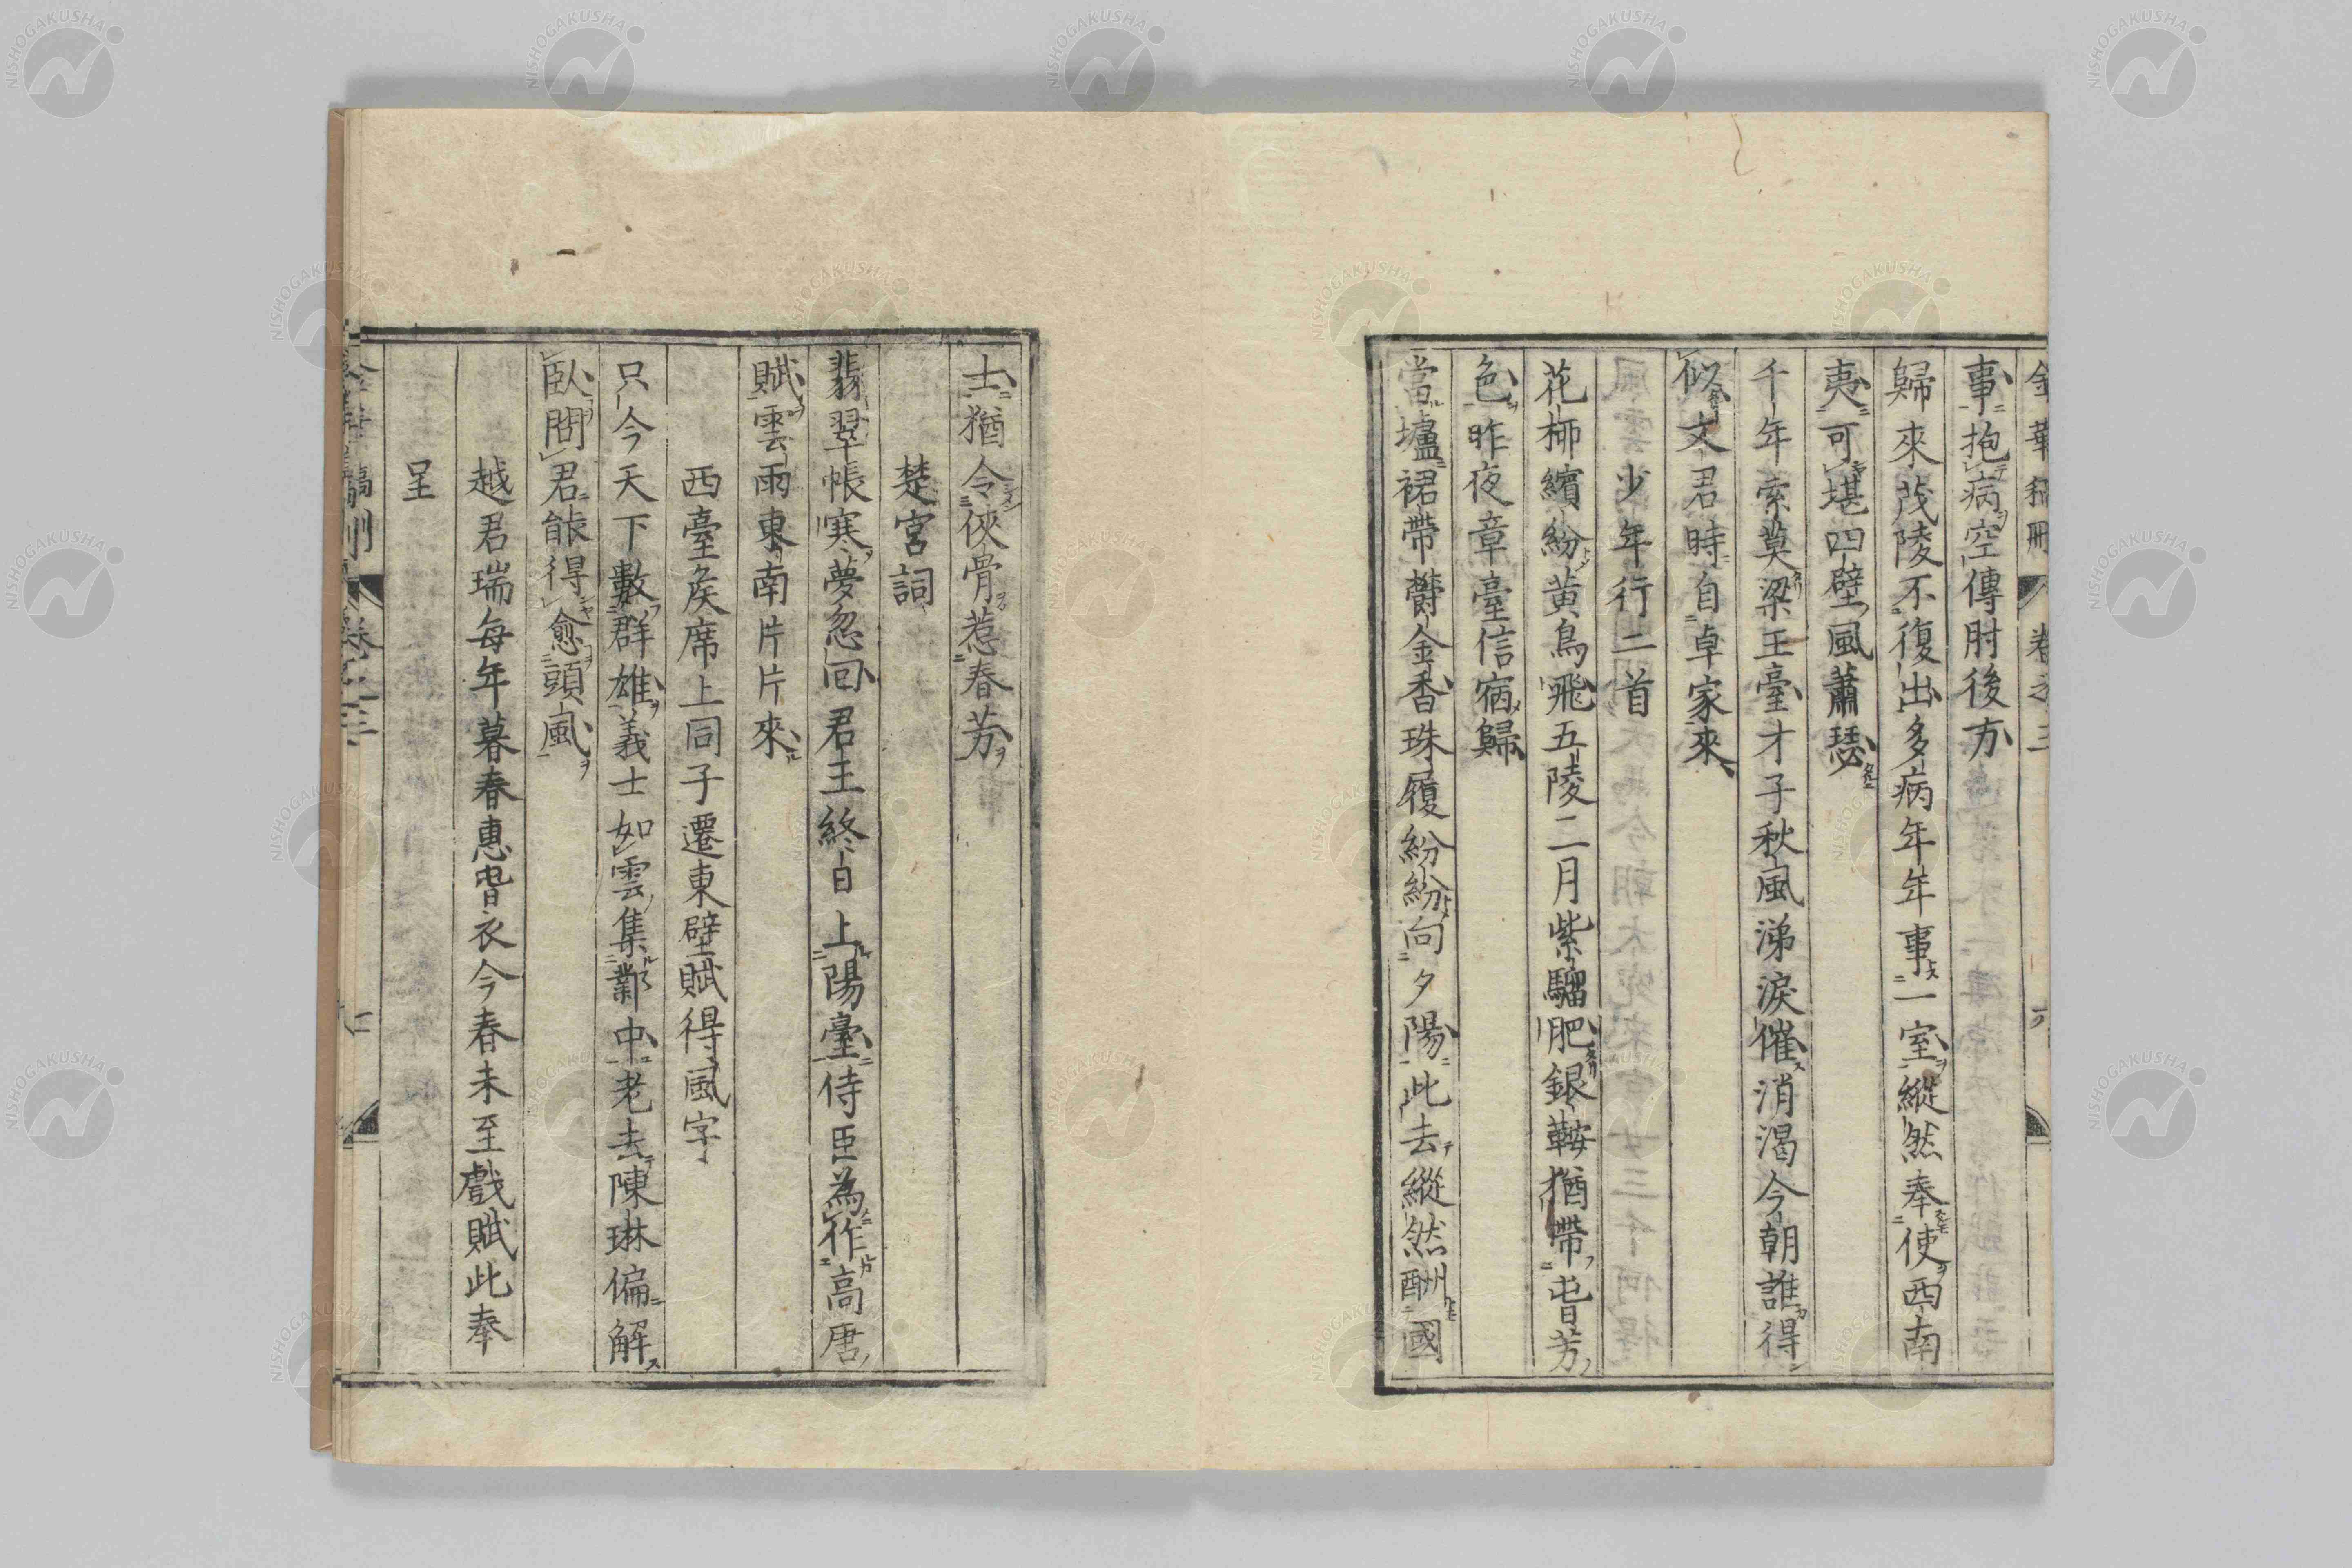 金華稿刪 卷之三
事抱病空傳肘後方
歸來茂陵不復出多病年年事一室縱然奉使西南
夷可堪四壁風蕭瑟
千年索莫梁王臺才子秋風涕淚催消渴今朝誰得
似文君時自卓家來
少年行二首
花柳繽紛黃鳥飛五陵二月紫騮肥銀鞍猶帶旹芳
色昨夜章臺信宿歸
當壚裙帶欎金香珠履紛紛向夕陽此去縱然酬國
士猶令俠骨惹春芳
楚宮詞
翡翠帳寒夢忽回君王終日上陽臺侍臣為作高唐
賦雲雨東南片片來
西臺矦席上同子遷東壁賦得風字
只今天下數群雄義士如雲集鄴中老去陳琳偏解
臥問君能得愈頭風
越君瑞每年暮春惠旹衣今春未至戲賦此奉
呈
NISHOGAKUSHA